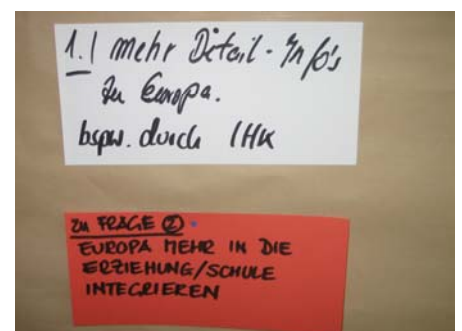 1.) mehr Detail-Info's
zu Europa.
bspw. durch IHK
ZU FRAGE ②
EUROPA MEHR IN DIE
ERZIEHUNG/SCHULE
INTEGRIEREN